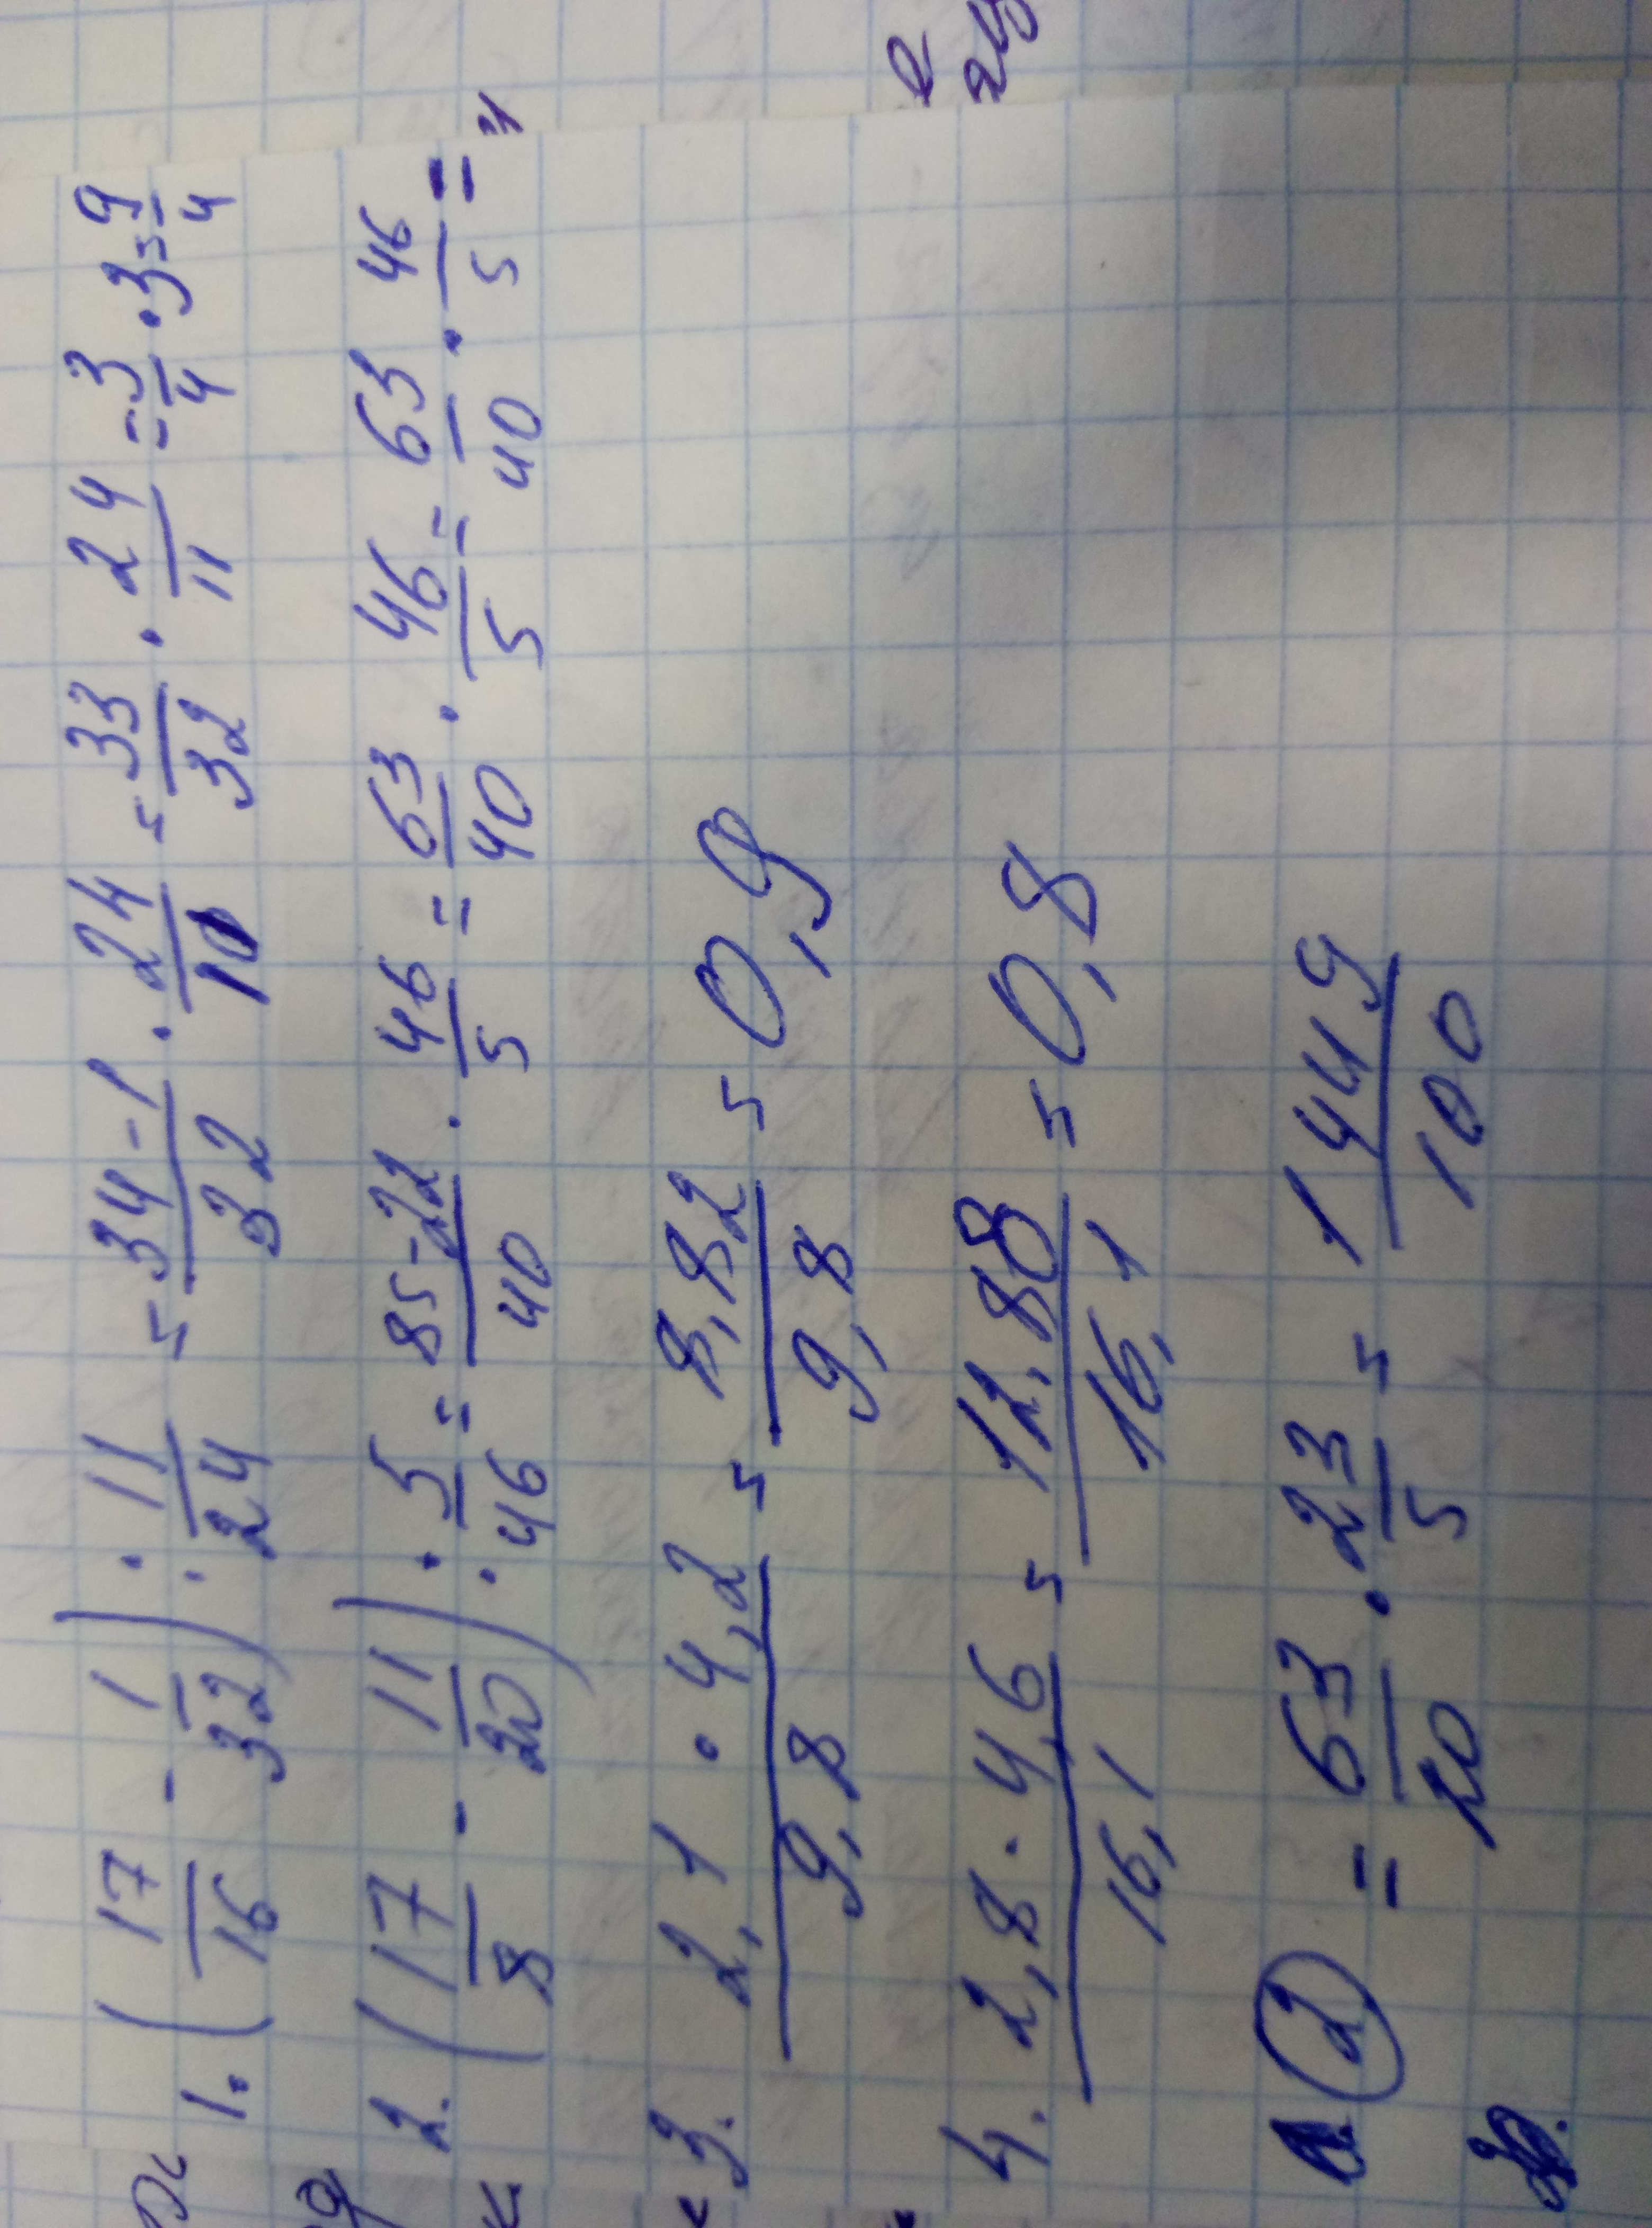 1. (17/16 - 1/32) : 11/24 = 34-1/32 · 24/10 = 33/32 · 24/11 = 3/4 · 3 = 9/4
2. (17/8 - 11/20) : 5/46 = 85-22/40 · 46/5 = 63/40 · 46/5 = 63/40 · 46/5 =
3. 2,1 · 4,2/9,8 = 8,82/9,8 = 0,9
4. 2,8 · 4,6/16,1 = 12,88/16,1 = 0,8
2 = 63/20 · 23/5 = 1449/100